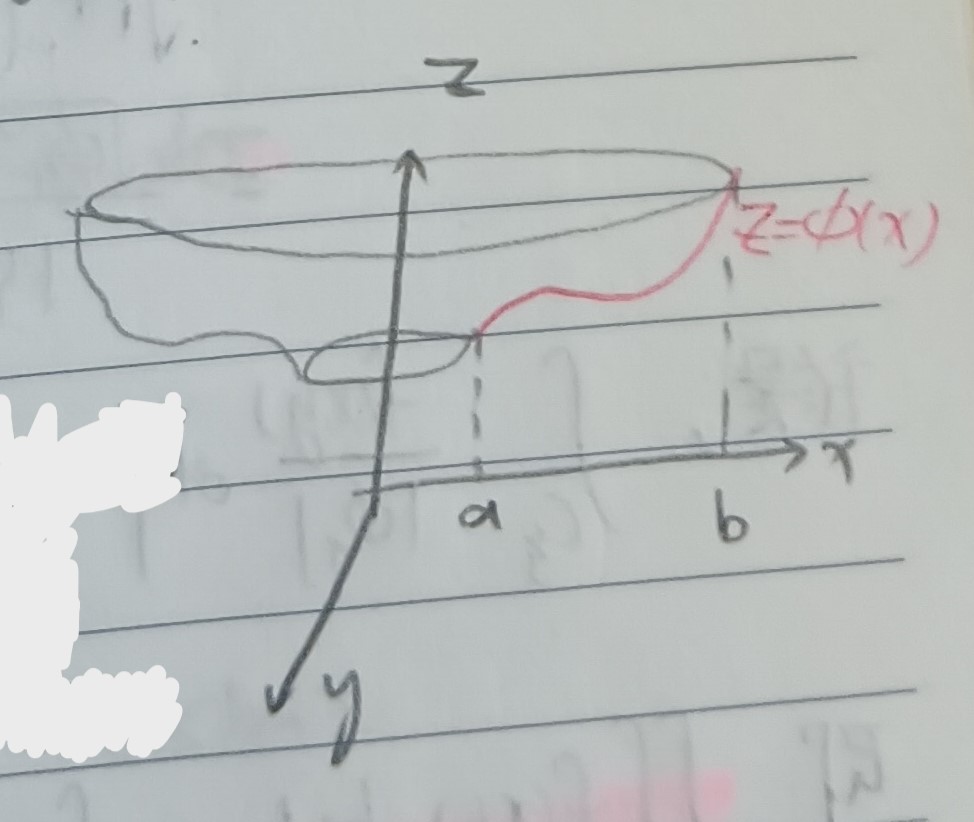 z
z=φ(x)
x
a
b
y